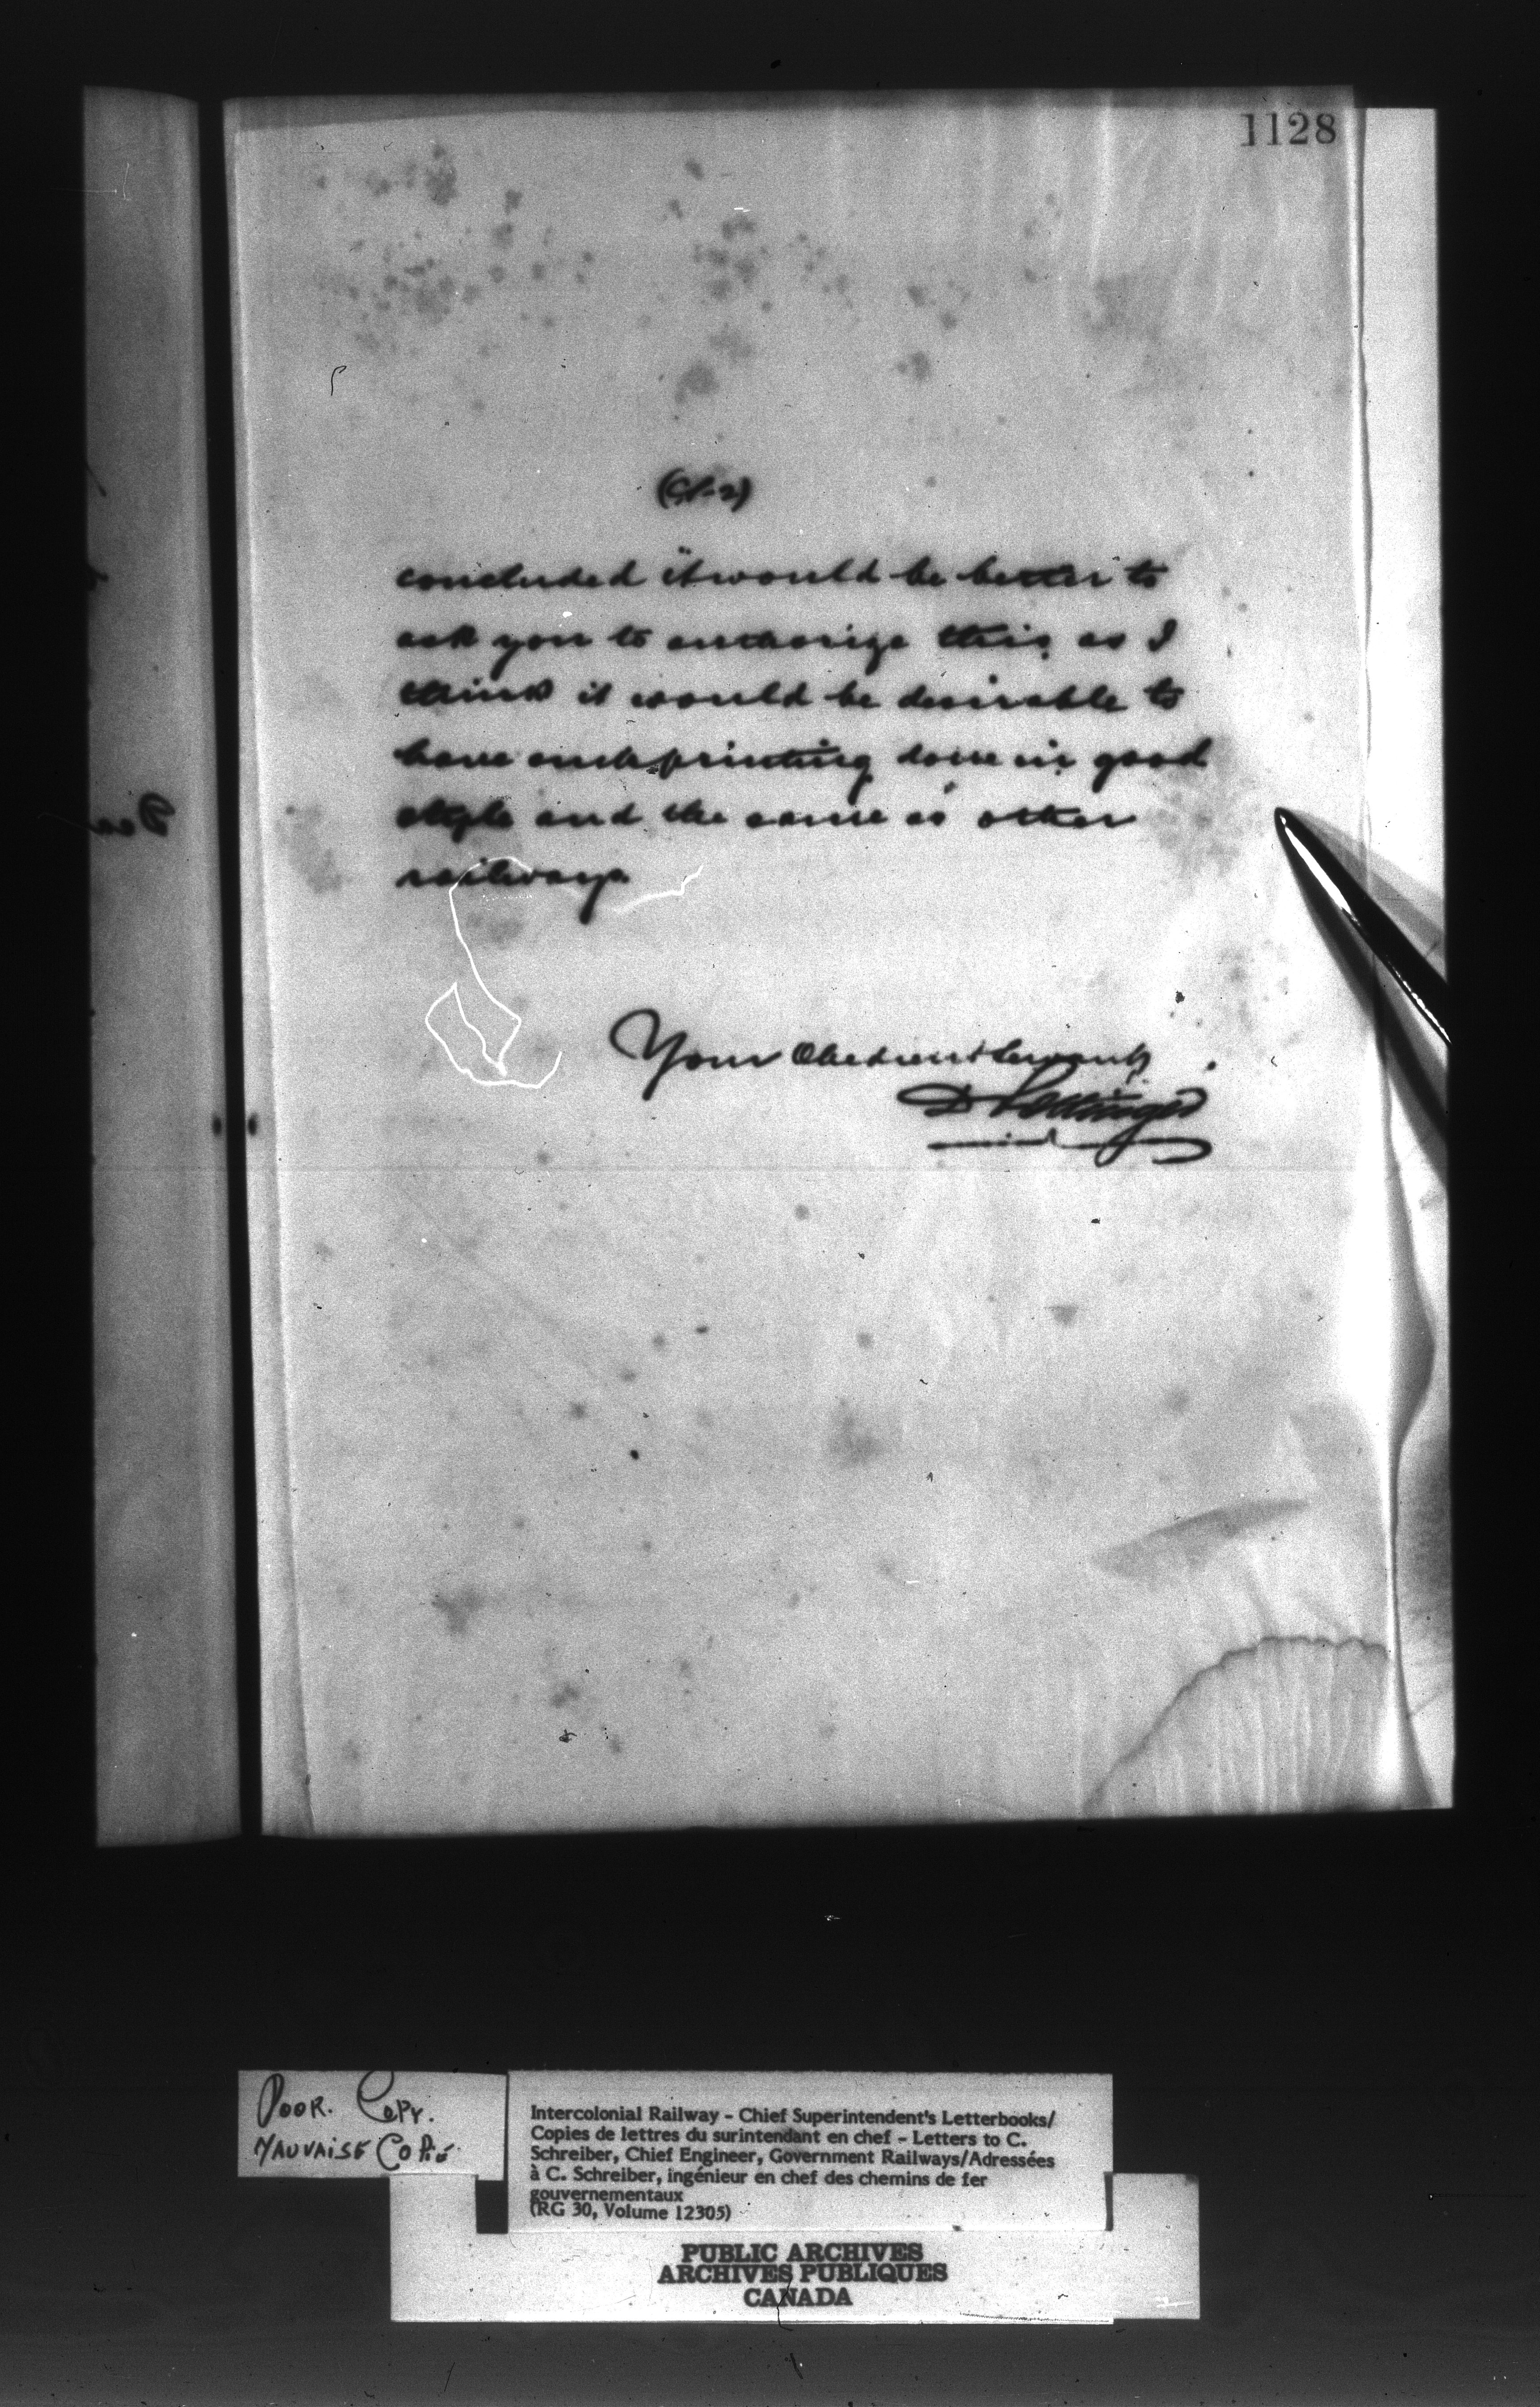 1128
concluded it would be better to
ask you to authorize this, as I
think it would be desirable to
have such printing done in good
style and the same as other
railways.
Your Obedient Servant,
D Pottinger
POOR. COPY.
MAUVAISE COPIE
Intercolonial Railway - Chief Superintendent's Letterbooks/
Copies de lettres du surintendant en chef - Letters to C.
Schreiber, Chief Engineer, Government Railways/Adressées
à C. Schreiber, ingénieur en chef des chemins de fer
gouvernementaux
(RG 30, Volume 12305)
PUBLIC ARCHIVES
ARCHIVES PUBLIQUES
CANADA